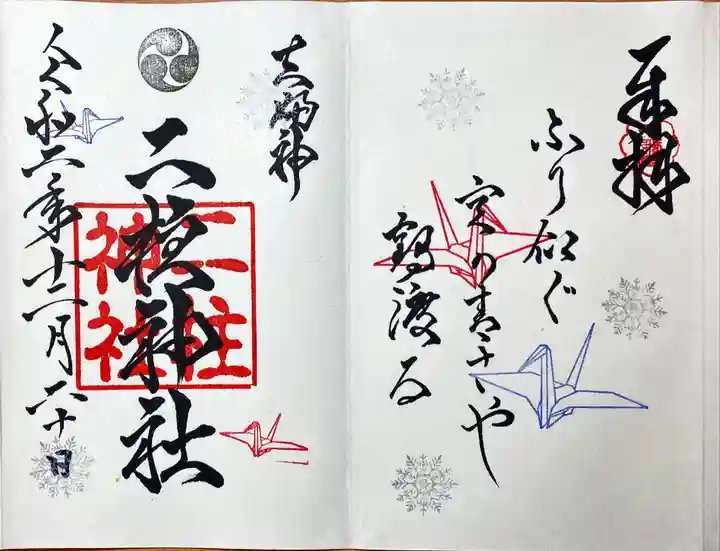 奉拝
ふり仰ぐ
空の青さや
鶴渡る
夫婦神
二柱神社
二柱
神社
令和二年十二月二十日